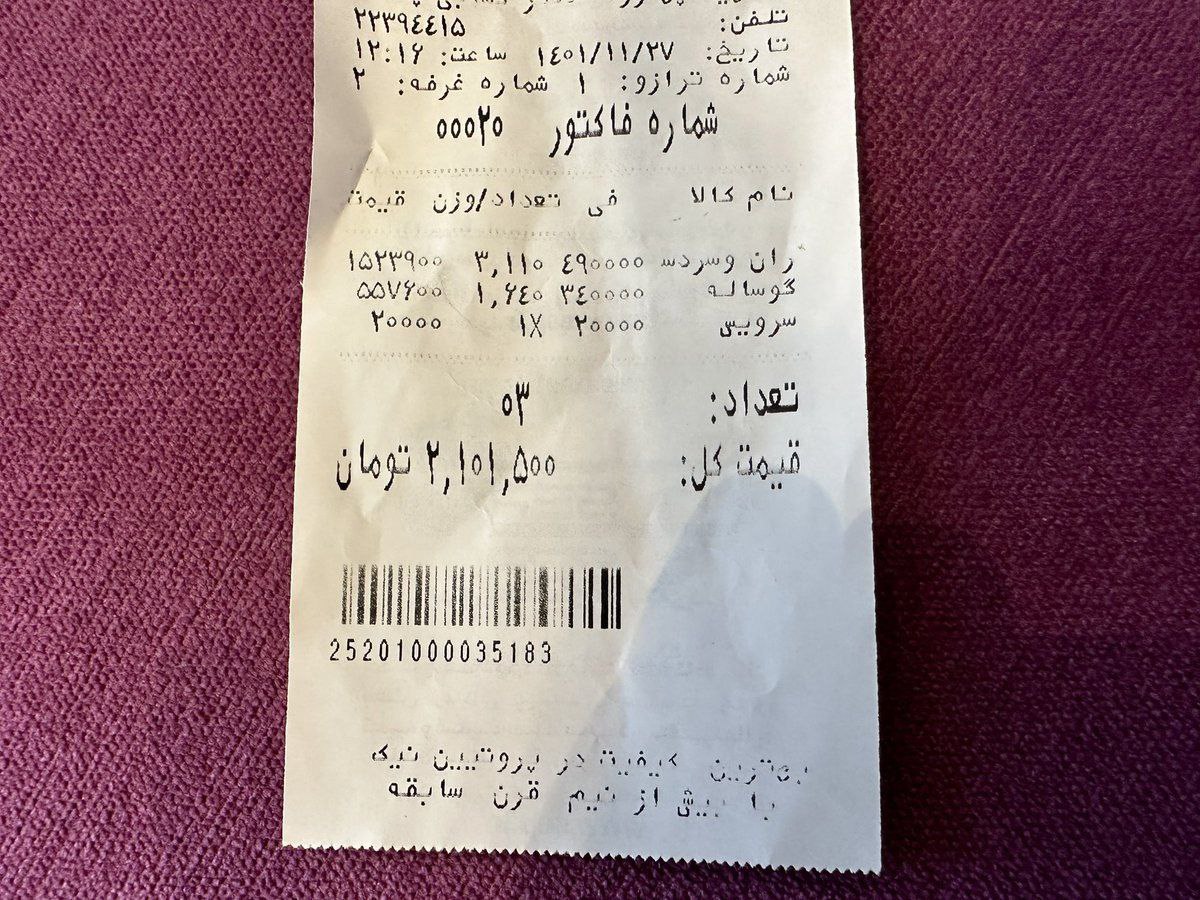 تلفن: ۲۲۳۹۴۴۱۵
تاریخ: ۱۴۰۱/۱۱/۲۷ ساعت: ۱۲:۱۶
شماره ترازو: ۱ شماره غرفه: ۲
شماره فاکتور ۰۰۰۲۰
نام کالا فی تعداد/وزن قیمت
ران وسردس ۴۹۰۰۰۰ ۳,۱۱۰ ۱۵۲۳۹۰۰
گوساله ۳۴۰۰۰۰ ۱,۶۴۰ ۵۵۷۶۰۰
سرویس ۲۰۰۰۰ ۱X ۲۰۰۰۰
تعداد: ۰۳
قیمت کل: ۲,۱۰۱,۵۰۰ تومان
25201000035183
بهترین کیفیت در پروتیین نیک
با بیش از نیم قرن سابقه